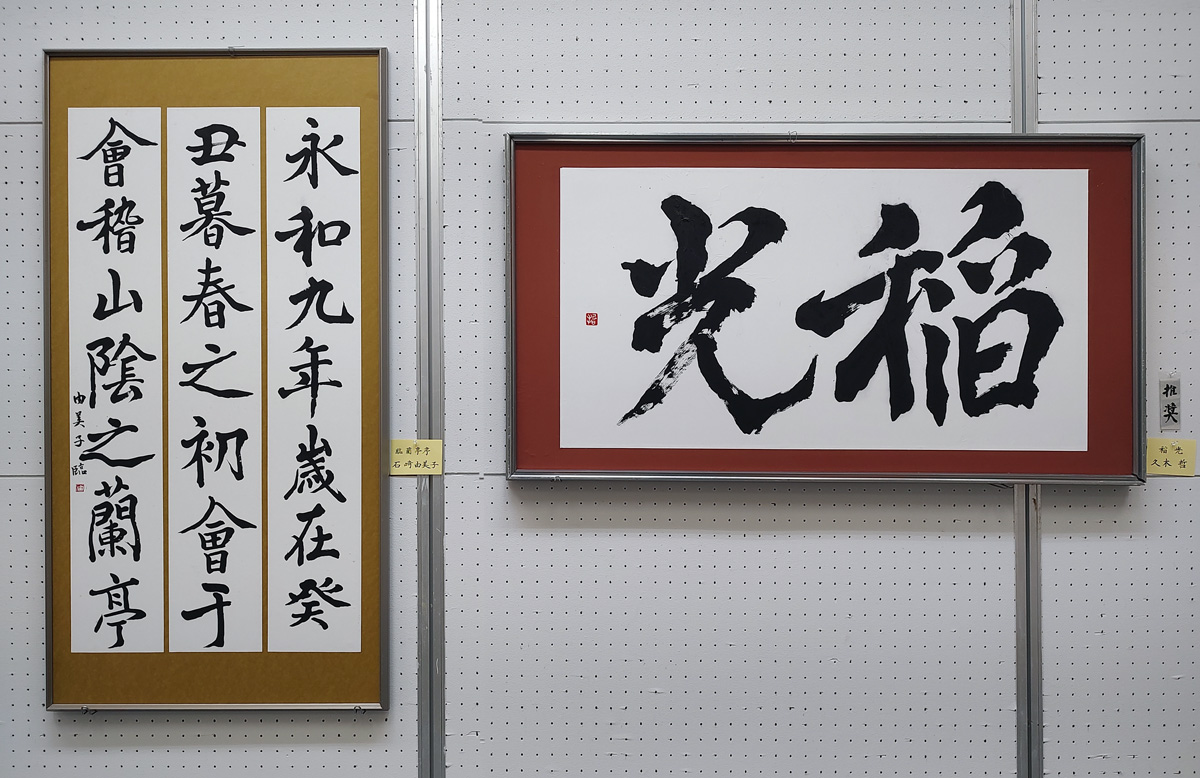 永和九年歲在癸
丑暮春之初會于
會稽山陰之蘭亭
由美子臨
臨蘭亭序
石崎由美子
稲光
推奨
稲光
久木哲